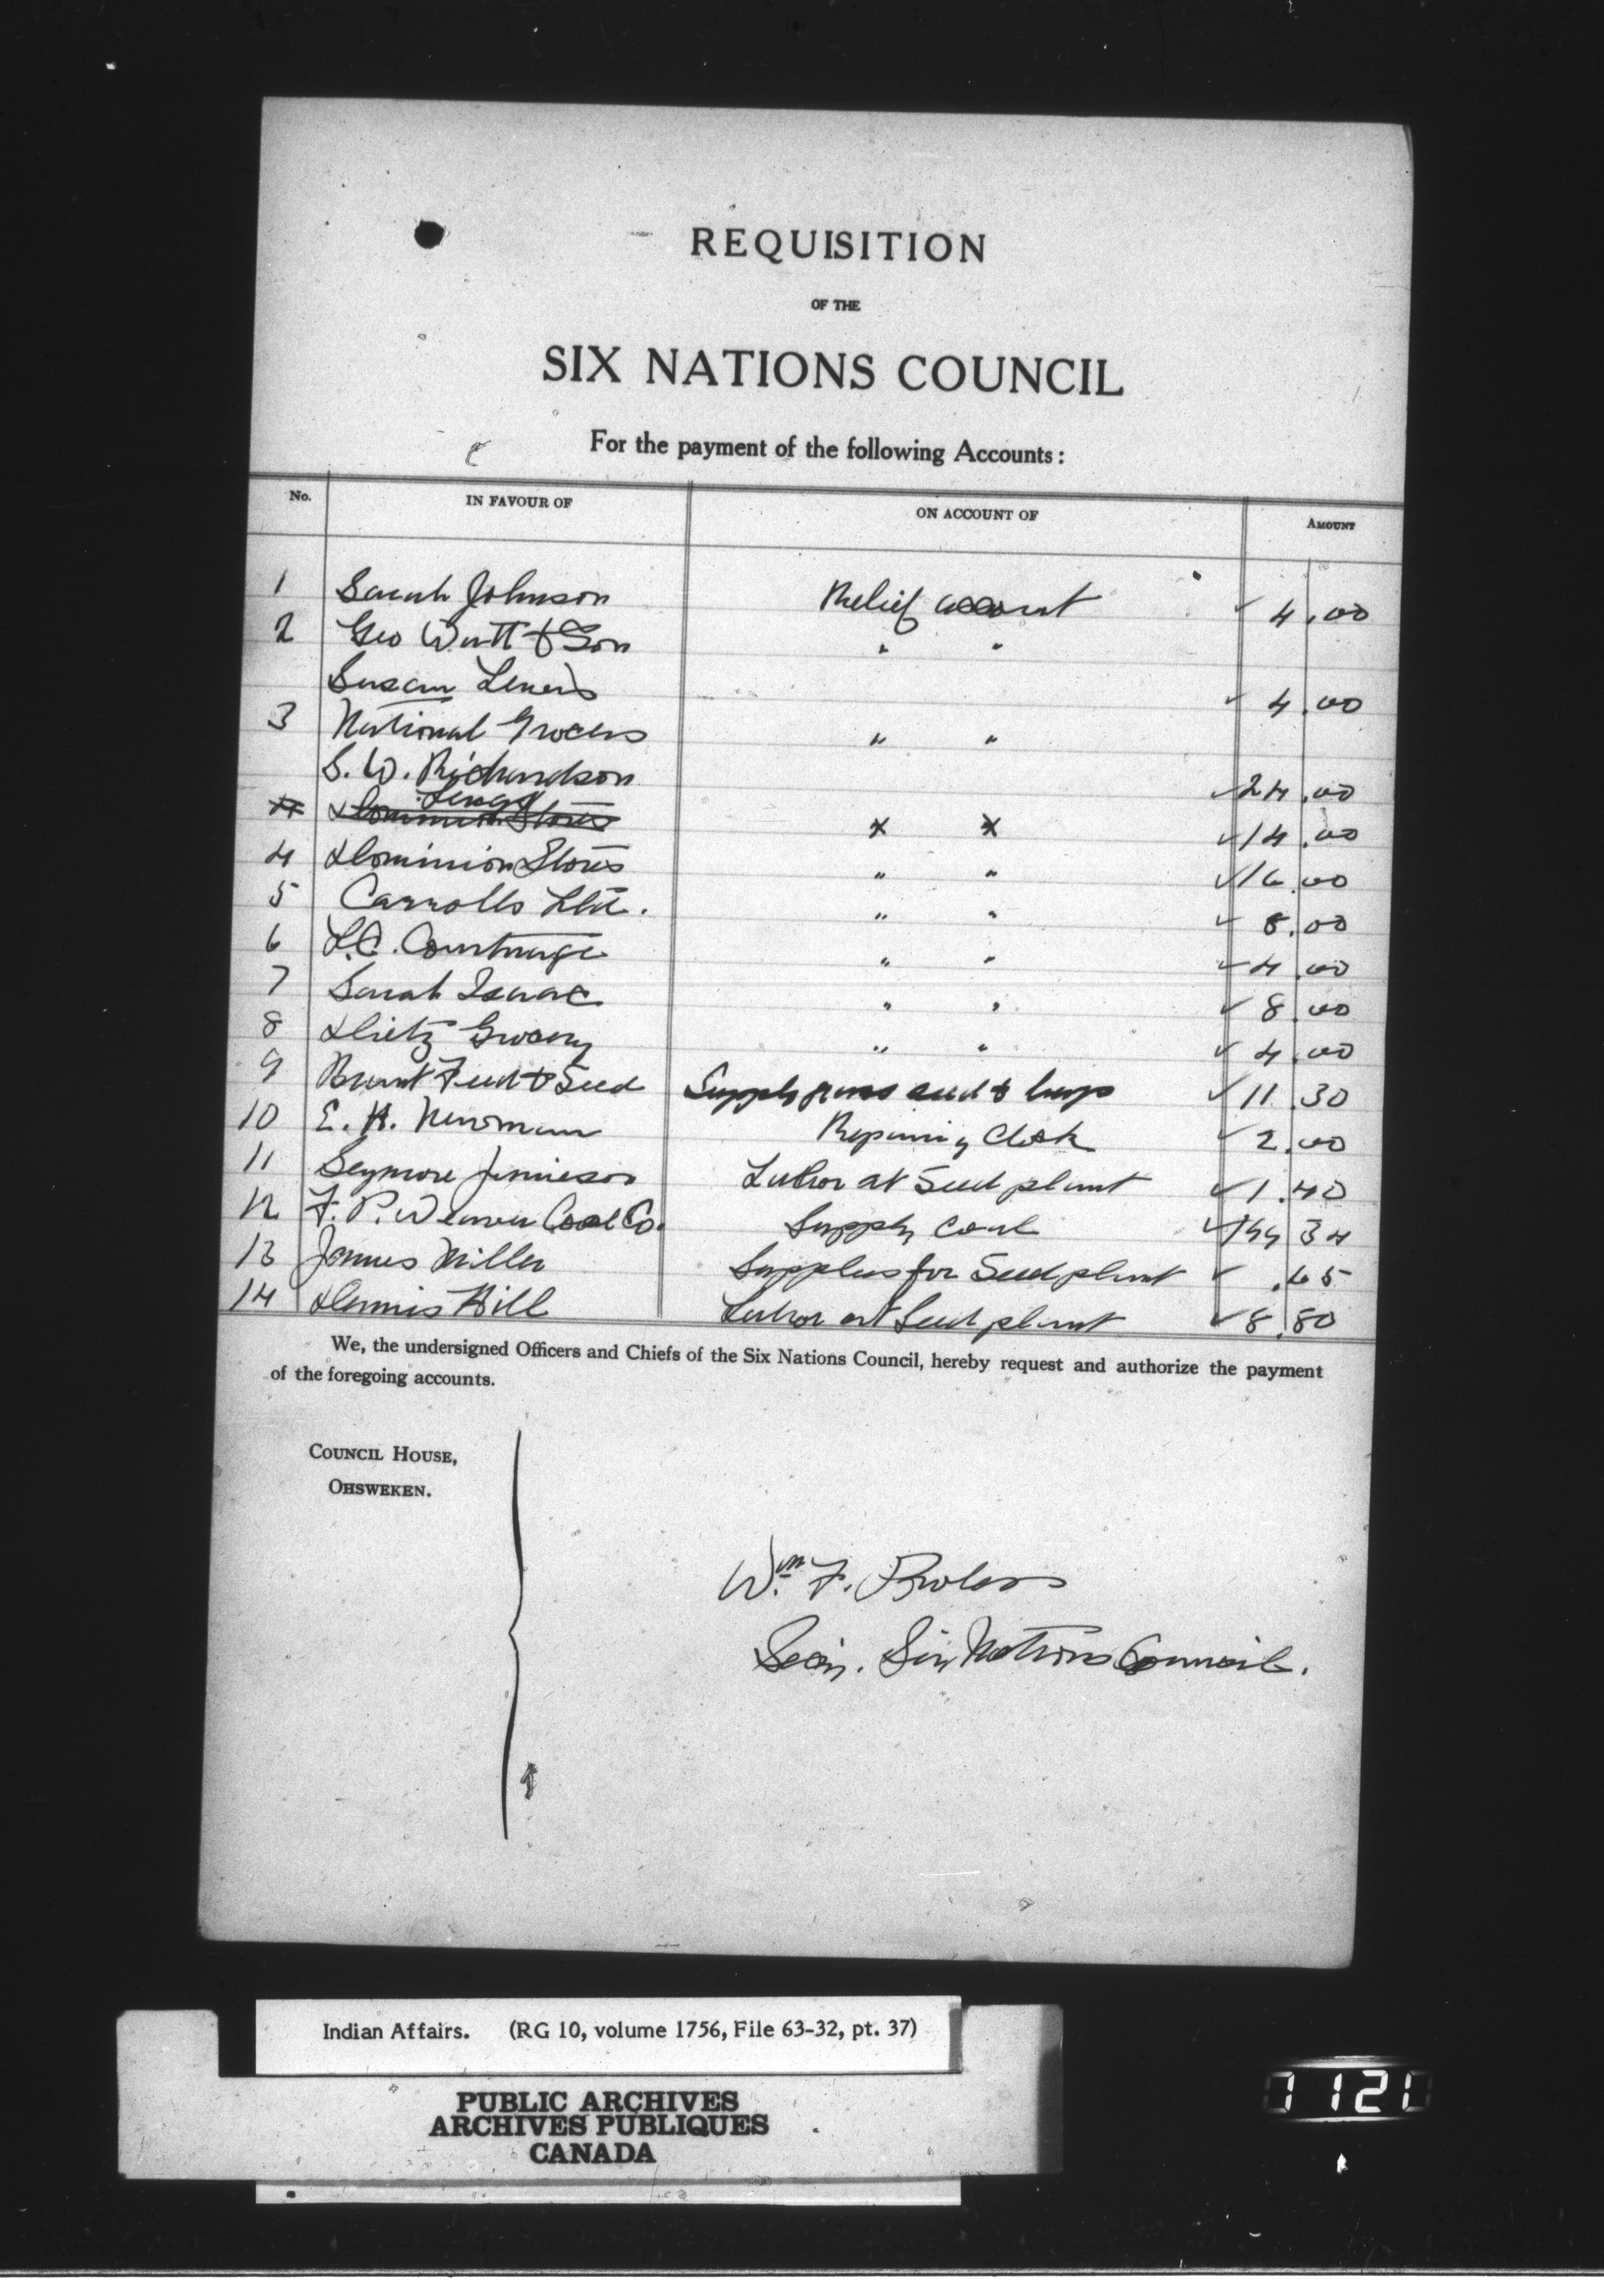 REQUISITION
OF THE
SIX NATIONS COUNCIL
For the payment of the following Accounts:
No. IN FAVOUR OF ON ACCOUNT OF AMOUNT
1 Sarah Johnson Relief account ✓ 4.00
2 Geo Watt & Son " "
Susan Lewis ✓ 4.00
3 National Grocers " "
S. W. Richardson ✓ 24.00
Dominion Stores ✓ 14.00
4 Dominion Stores " " ✓ 16.00
5 Carrolls Ltd. " " ✓ 8.00
6 L.C. Courtnage " " ✓ 4.00
7 Sarah Isaac " " ✓ 8.00
8 Dietz Grocery " " ✓ 4.00
9 Brant Feed & Seed Supply grass seed & bags ✓ 11.30
10 E. H. Newman Repairing Clock ✓ 2.00
11 Seymore Jamieson Labor at Seed plant ✓ 1.40
12 F. P. Weaver Coal Co. Supply coal ✓ 34
13 James Miller Supplies for Seed plant ✓ .65
14 Dennis Hill Labor at Seed plant ✓ 8.80
We, the undersigned Officers and Chiefs of the Six Nations Council, hereby request and authorize the payment
of the foregoing accounts.
COUNCIL HOUSE,
OHSWEKEN.
Wm. F.
Secy. Six Nations Council.
Indian Affairs. (RG 10, volume 1756, File 63-32, pt. 37)
PUBLIC ARCHIVES
ARCHIVES PUBLIQUES
CANADA
1121